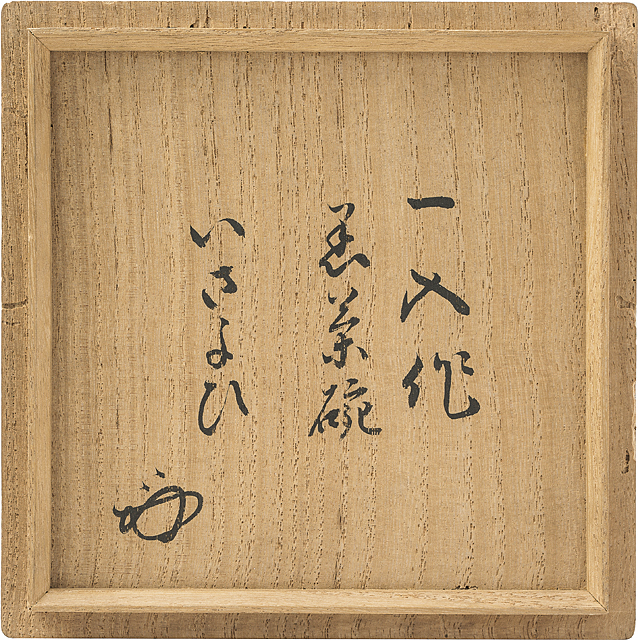 一入作
黒茶碗
いさよひ